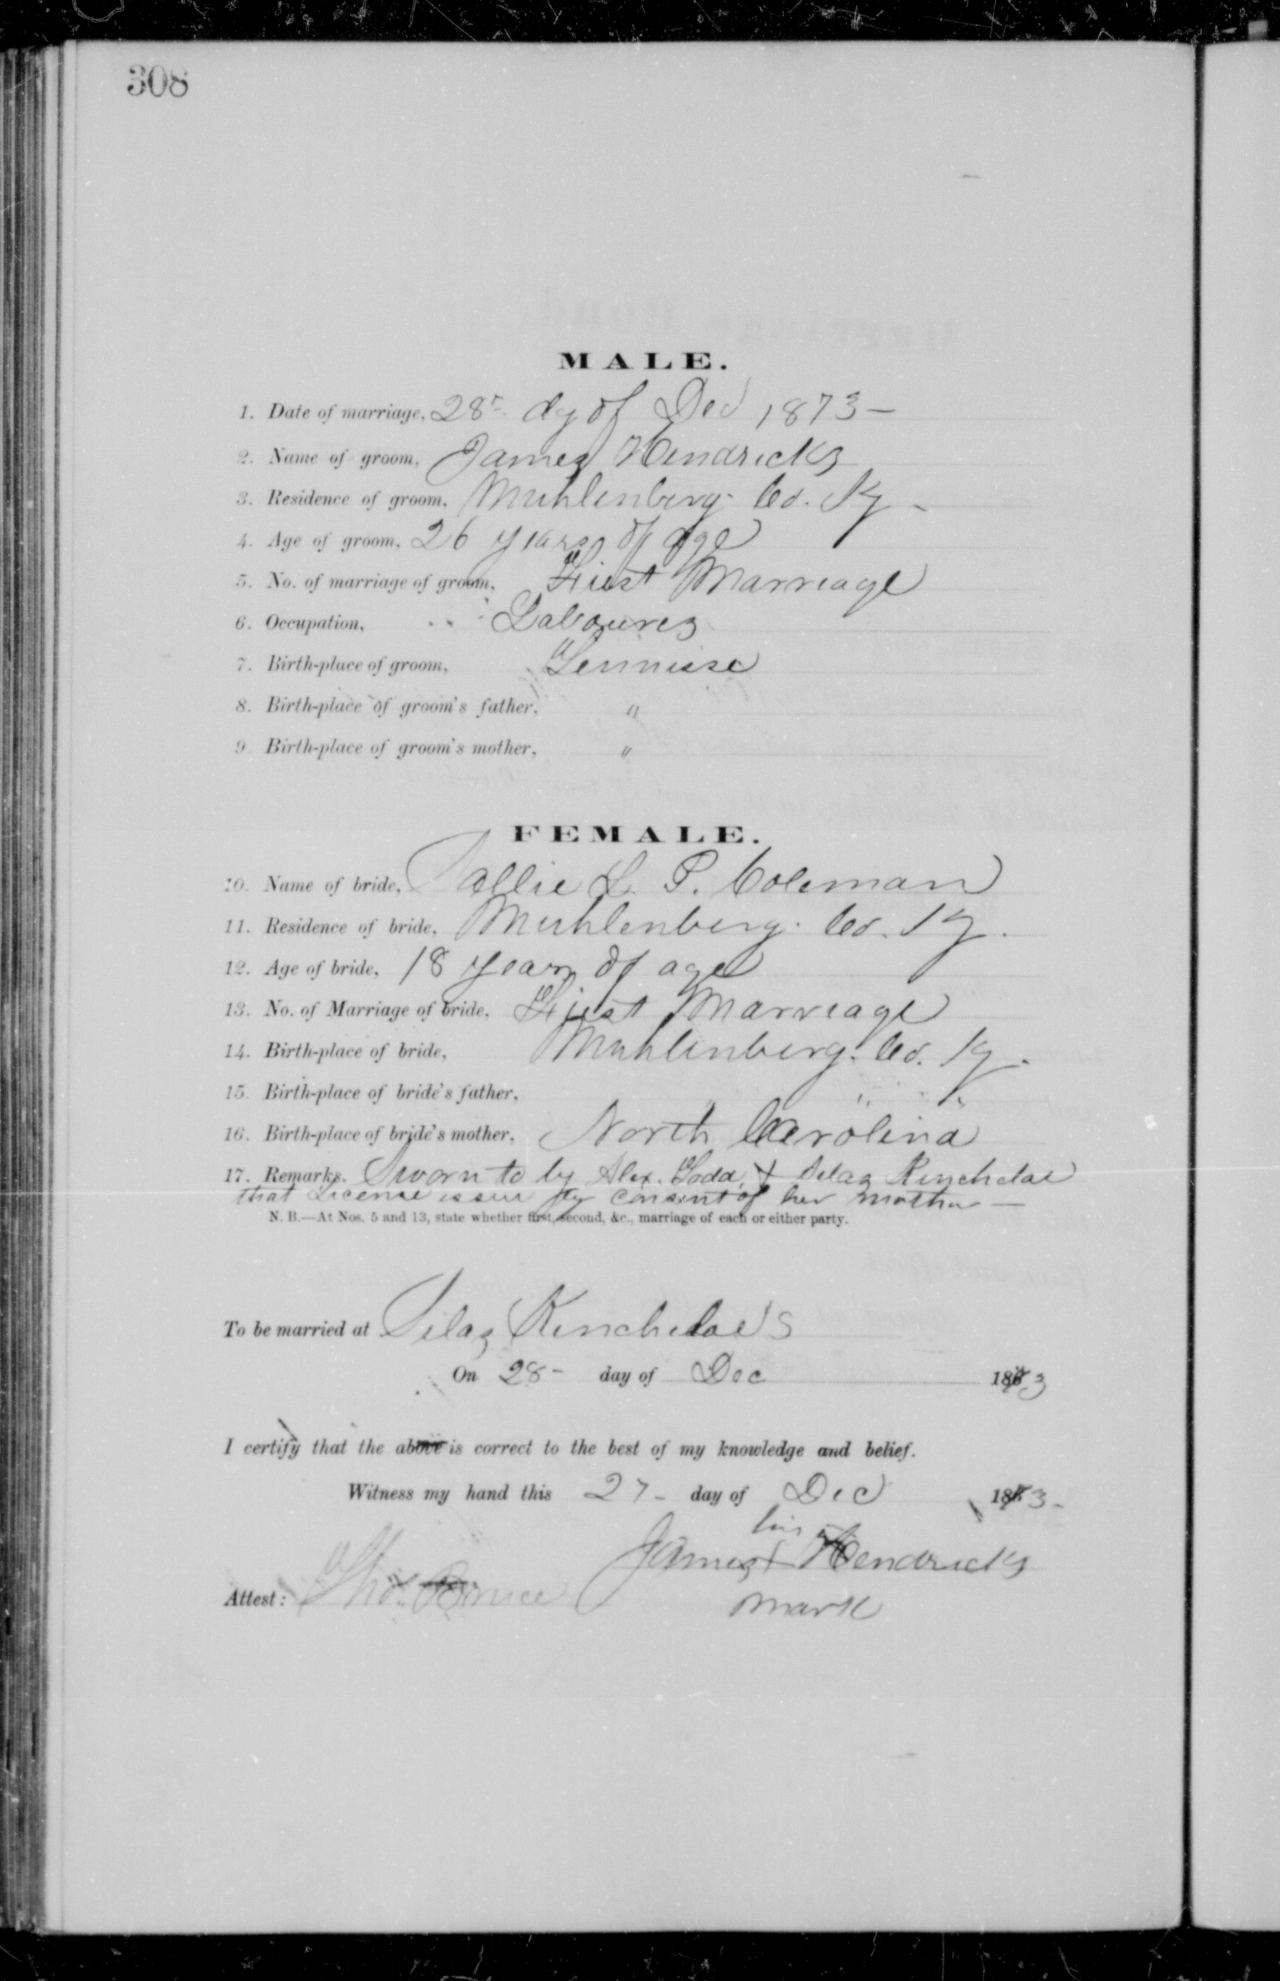 308
MALE.
1. Date of marriage, 28th dy of Dec 1873 —
2. Name of groom, James Hendricks
3. Residence of groom, Muhlenberg Co. Ky -
4. Age of groom, 26 years of age
5. No. of marriage of groom, First Marriage
6. Occupation, Labourer
7. Birth-place of groom, Tennisse
8. Birth-place of groom's father, "
9. Birth-place of groom's mother, "
FEMALE.
10. Name of bride, Sallie L. P. Coleman
11. Residence of bride, Muhlenberg. Co. Ky.
12. Age of bride, 18 years of age
13. No. of Marriage of bride, First Marriage
14. Birth-place of bride, Muhlenberg. Co. Ky.
15. Birth-place of bride's father, " "
16. Birth-place of bride's mother, North Carolina
17. Remarks. Sworn to by Alex. Todd, & Silas Kincheloe
that License issue by consint of her mother —
N. B.—At Nos. 5 and 13, state whether first, second, &c., marriage of each or either party.
To be married at Silas Kincheloe's
On 28 - day of Dec 1873
I certify that the above is correct to the best of my knowledge and belief.
Witness my hand this 27 - day of Dec 1873 -
his
James X Hendricks
Attest: Tho. Bruce mark